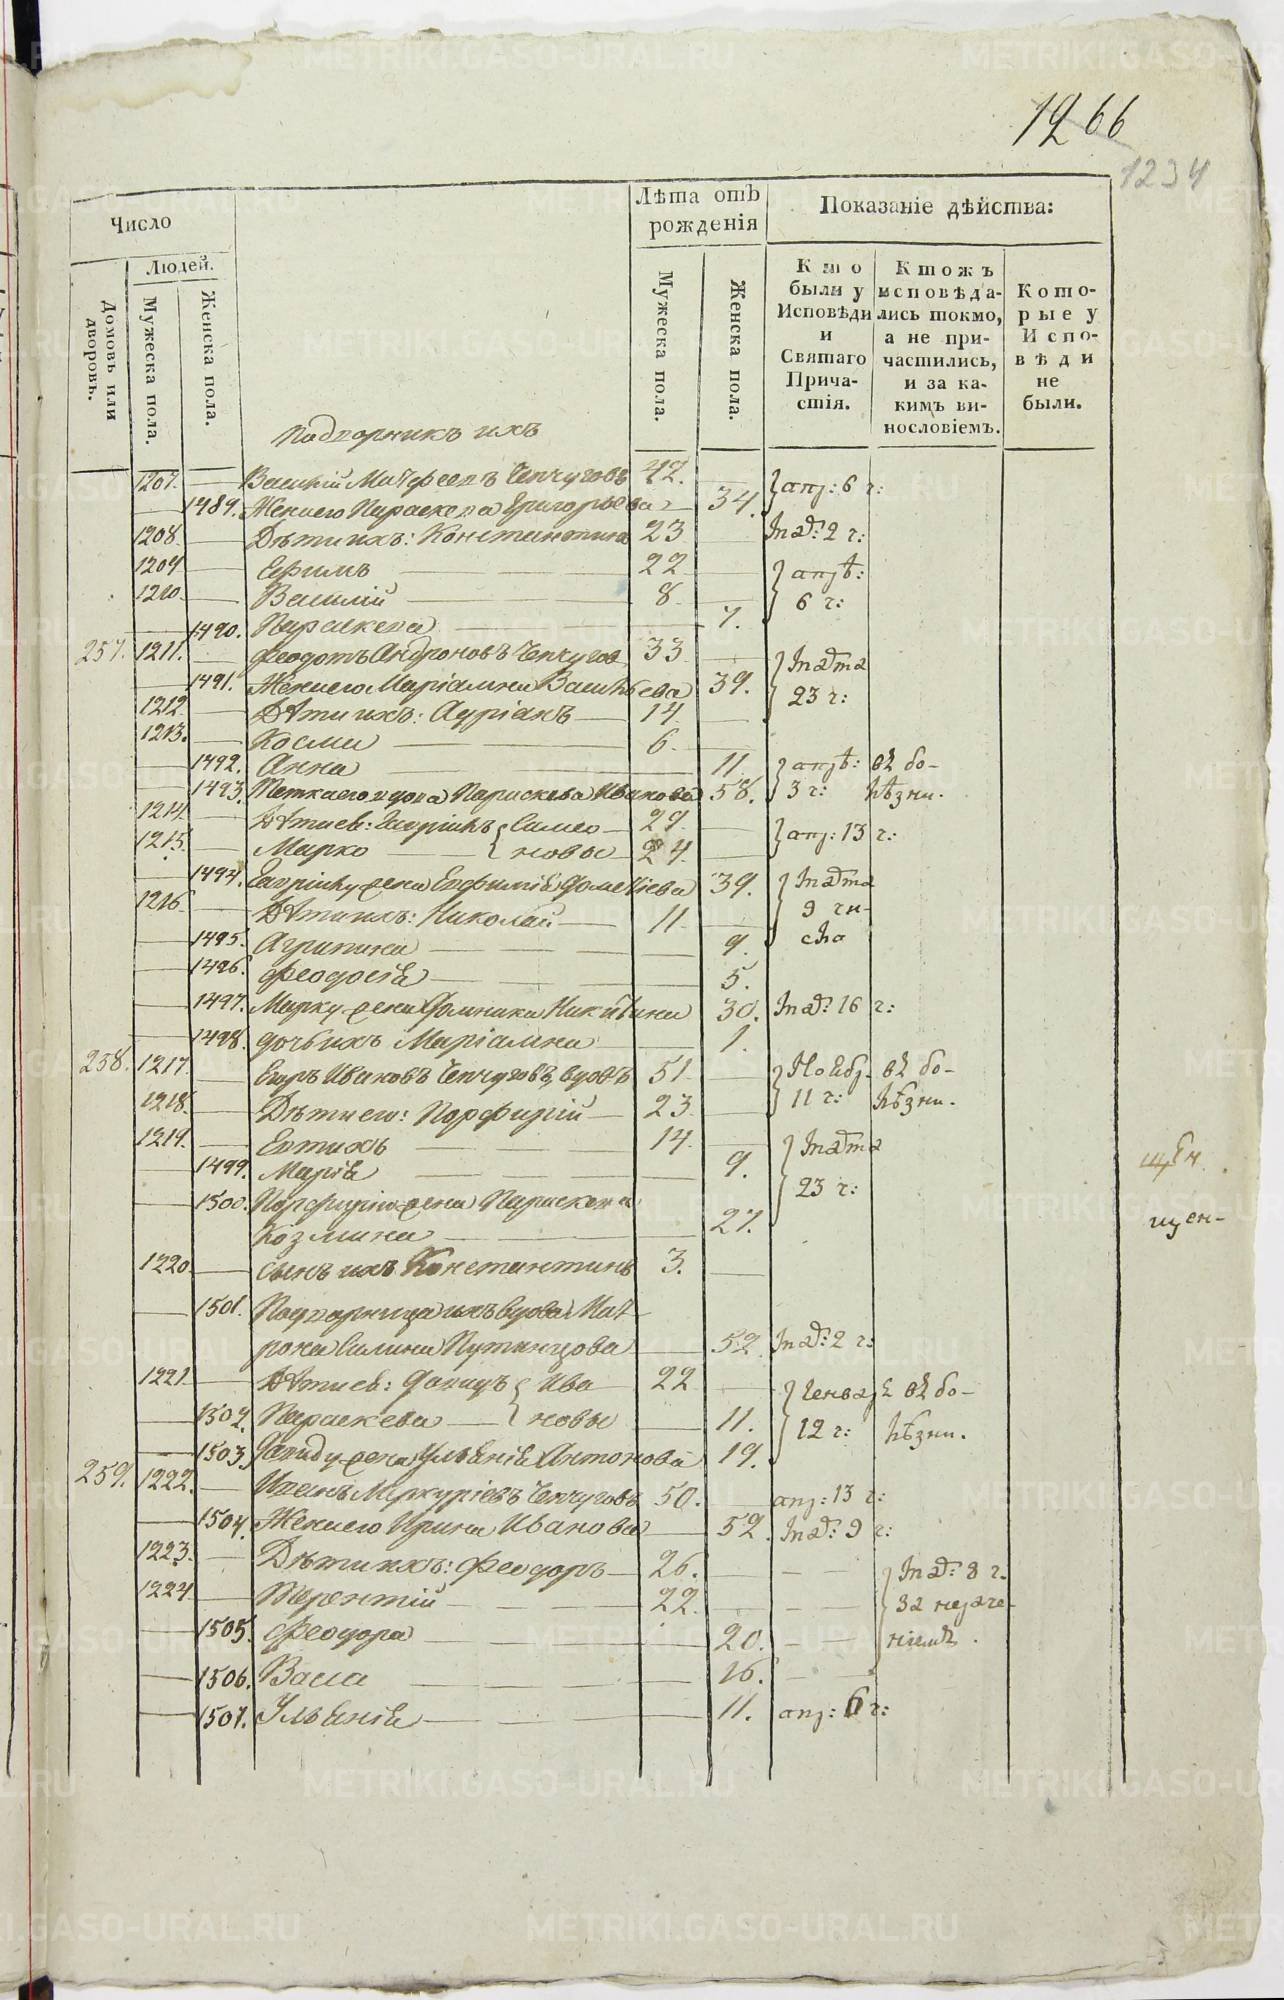 1266
1234
Число
Людей.
Домовъ или дворовъ.
Мужеска пола.
Женска пола.
Лѣта отъ рожденія
Мужеска пола.
Женска пола.
Показаніе дѣйства:
Кто были у Исповѣди и Святаго Причастія.
Ктожъ исповѣдались токмо, а не причастились, и за какимъ винословіемъ.
Которые у Исповѣди не были.
Подворникъ ихъ
1207. Василій Матфеевъ Чепчуговъ 42. апр: 6 ч:
1489. Жена его Параскева Григорьева 34.
1208. Дѣти ихъ: Константинъ 23 2 ч:
1209 Ефимъ 22 апрѣ:
1210. Василій 8. 6 ч:
1490. Параскева 7.
257. 1211. Феодотъ Андроновъ Чепчугов 33
1491. Жена его Маріамна Васильева 39. 23 ч:
1212 Дѣти их: Адріанъ 14
1213. Косма 6.
1492. Анна 11 апрѣ: въ бо-
1493. Тетка его вдова Параскева Иванова 58. 3 ч: лѣзни.
1214. Дѣти ев: Гавріилъ Симео- 29. апр: 13 ч:
1215. Марко новы 24.
1494. Гавріилу жена Евфимія 39.
1216. Дѣти ихъ: Николай 11 9 чи-
1495. Агрипина 9. сла
1496. Феодосія 5.
1497. Марку жена Домника Никитина 30. 16 ч:
1498. дочь ихъ Маріамна 1.
258. 1217. Егоръ Ивановъ Чепчуговъ, вдовъ 51. Ноябр. въ бо-
1218. Дѣти его: Порфирій 23 11 ч: лѣзни.
1219. Евтихъ 14.
1499. Марія 9.
1500. Порфирію жена Параскева 23 ч:
Козмина 27.
1220. сынъ ихъ Константинъ 3.
1501. Подворница ихъ вдова Мат-
рона 52. 2 ч:
1221. Дѣти ев: Давидъ Ива 22 Генвар: въ бо-
1502. Параскева новы 11. 12 ч: лѣзни.
1503. Давиду жена Ульянія Антонова 19.
259. 1222. Иванъ Меркуріевъ Чепчуговъ 50. апр: 13 ч:
1504. Жена его Ирина Иванова 52. 9 ч:
1223. Дѣти ихъ: Феодоръ 26. 8 ч.
1224. Терентій 22. за
1505. Феодора 20.
1506. Васса 16.
1507. Ульянія 11. апр: 6 ч: